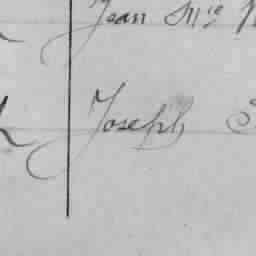 Jean Mie
Joseph